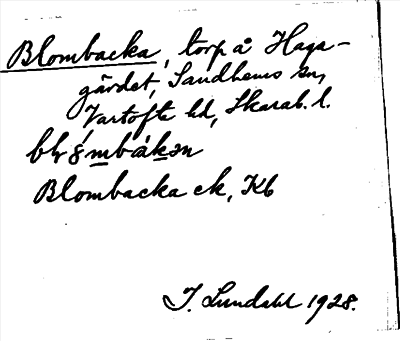 Blombacka, torp å Haga-
gärdet, Sandhems sn,
Vartofta hd, Skarab. l.
Blombacka ek, Kb
I. Lundahl 1928.